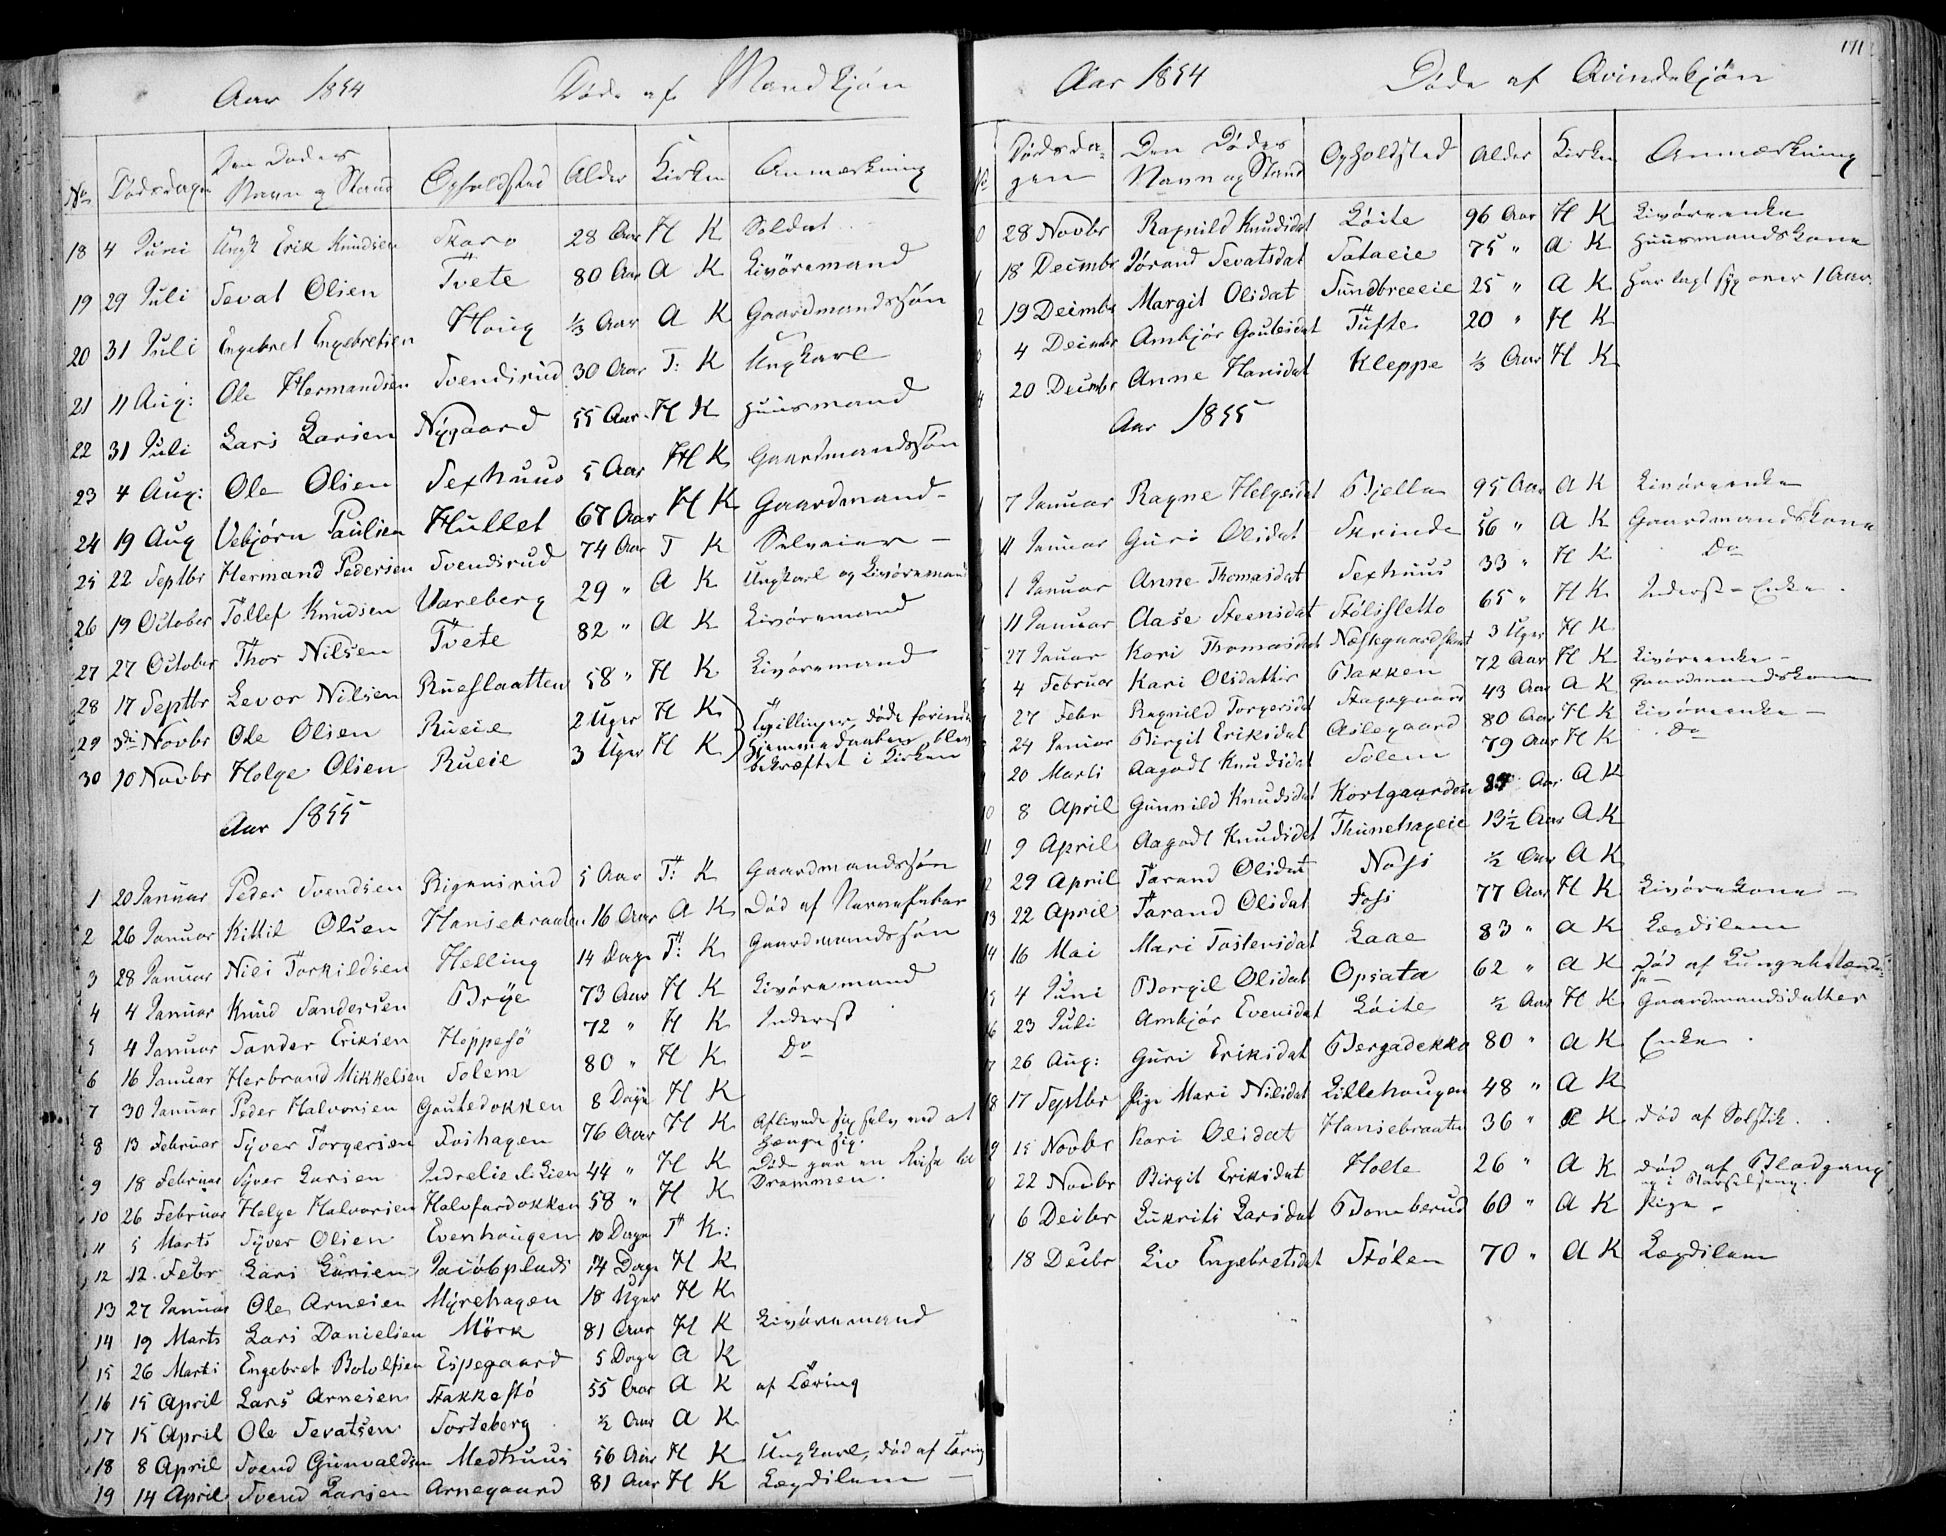 Aar 1854 Døde af Mandkjøn
No Dødsdagen Den Dødes Navn og Stand Opholdsted Alder Kirken Anmærkning
18 4 Juni Erik Knudsen Skaro 28 Aar H K Soldat
19 29 Juli Sevat Olsen Tvete 80 Aar A K Livøremand
20 31 Juli Engebret Engebretsen Houg 1/3 Aar A K Gaardmandssøn
21 11 Aug: Ole Hermandsen Svendsrud 30 Aar T: K Ungkarl
22 31 Juli Lars Larsen Nygaard 55 Aar H K Huusmand
23 4 Aug: Ole Olsen Sexhuus 5 Aar H K Gaardmandssøn
24 19 Aug Vebjørn Paulsen Hullet 67 Aar H K Gaardmand
25 22 Septbr Hermand Pedersen Svendsrud 74 Aar T K Selveier
26 19 October Tollef Knudsen Vareberg 29 " A K Ungkarl og Livøremand
27 27 October Thor Nilsen Tvete 82 " A K Livøremand
28 17 Septbr Levor Nilsen Rueslaatten 58 " H K Livøremand
29 3die Novbr Ole Olsen Rueie 2 Uger H K Tvillinger, døde forinden
30 10 Novbr Helge Olsen Rueie 3 Uger H K Hjemmedaaben blev bekræftet i Kirken
Aar 1855
1 20 Januar Peder Svendsen 5 Aar T: K Gaardmandssøn
2 26 Januar Kittil Olsen Hansebraaten 16 Aar A K Død af Nervefeber
3 28 Januar Nils Torkildsen Helling 14 Dage T: K Gaardmandssøn
4 4 Januar Knud Sandersen Brye 73 Aar H K Livøremand
5 4 Januar Sander Eriksen Heppesø 72 " H K Inderst
6 16 Januar Herbrand Mikkelsen Solem 80 " H K Do
7 30 Januar Peder Halvorsen Goutedokken 8 Dage H K
8 13 Februar Syver Torgersen Foshagen 76 Aar H K Aflivede sig selv ved at hænge sig.
9 18 Februar Syver Larsen 44 " H K Døde paa en Reise til Drammen.
10 26 Februar Helge Halvorsen Halvfardokken 58 " H K
11 5 Marts Syver Olsen Evenhougen 10 Dage T K:
12 12. Febr Lars Larsen Jacobplads 14 Dage H K
13 27 Januar Ole Arnesen Myrehagen 18 Uger H K
14 19 Marts Lars Danielsen Mørk 81 Aar H K Livøremand
15 26 Marts Engebret Botolfsen Espegaard 5 Dage A K
16 15 April Lars Arnesen Stakkestø 55 Aar A K af Tæring
17 15 April Ole Sevatsen Torteberg ½ Aar A K
18 8 April Svend Gunvaldsen Medhuus 56 Aar H K Ungkarl, død af Tæring
19 14 April Svend Larsen Arnegaard 81 Aar H K Lægdslem
171
Aar 1854 Døde af Qvindekjøn
No Dødsdagen Den Dødes Navn og Stand Opholdsted Alder Kirken Anmærkning
28 Novbr Ragnild Knudsdat Løite 96 Aar H K Livøreenke
18 Decembr Jørand Sevatsdat Sataeie 75 " A K Huusmandskone
19 Decembr Margit Olsdat Sundbreeie 25 " A K Har lagt syg over 1 Aar.
4 Decembr Ambjør Goutesdat Tufte 20 " H K
20 Decembr Anne Hansdat Kleppe 1/3 Aar H K
Aar 1855
7 Januar Ragne Helgesdat Bjella 95 Aar A K Livøreenke
11 Januar Guri Olsdat Skrinde 56 " A K Gaardmandskone
1 Januar Anne Thomasdat Sexhuus 33 " H K Do
11 Januar Aase Steensdat Stølsletto 65 " H K Inderst-Enke.
27 Januar Kari Thomasdat 3 Uger H K
4 Februar Kari Olsdatter Bakken 72 Aar H K Livøreenke
27 Febr Ragnild Torgersdat 43 Aar A K Gaardmandskone
24 Januar Birgit Eriksdat Aslegaard 80 Aar H K Livøreenke
20 Marts Aagodt Knudsdat Solem 79 Aar H K Do
10 8 April Gunnild Knudsdat Kortgaarden Aar A K
11 9 April Aagodt Knudsdat Thunehageie 13½ Aar A K
12 29 April Tarand Olsdat Næss ½ Aar A K
13 22 April Tarand Olsdat Foss 77 Aar H K Livørekone
14 16 Mai Mari Tostensdat Laae 83 " A K Lægdslem
15 4 Juni Borgil Olsdat Opsata 62 " A K Død af Lungebetændelse
16 23 Juli Ambjør Evensdat Løite ½ Aar H K Gaardmandsdatter
17 26 Aug: Guri Eriksdat Bergadekka 80 " A K Enke.
18 17 Septbr Pige Mari Nilsdat Lillehougen 48 " A K
19 15 Novbr Kari Olsdat Hansebraaten 36 " A K Død af Solstik.
22 Novbr Birgit Eriksdat Holte 26 " A K Død af Blodgang og i Barselseng.
6 Decbr Lukrits Larsdat Bomberud 60 " A K Pige
18 Decbr Liv Engebretsdat Stølen 70 " A K Lægdslem